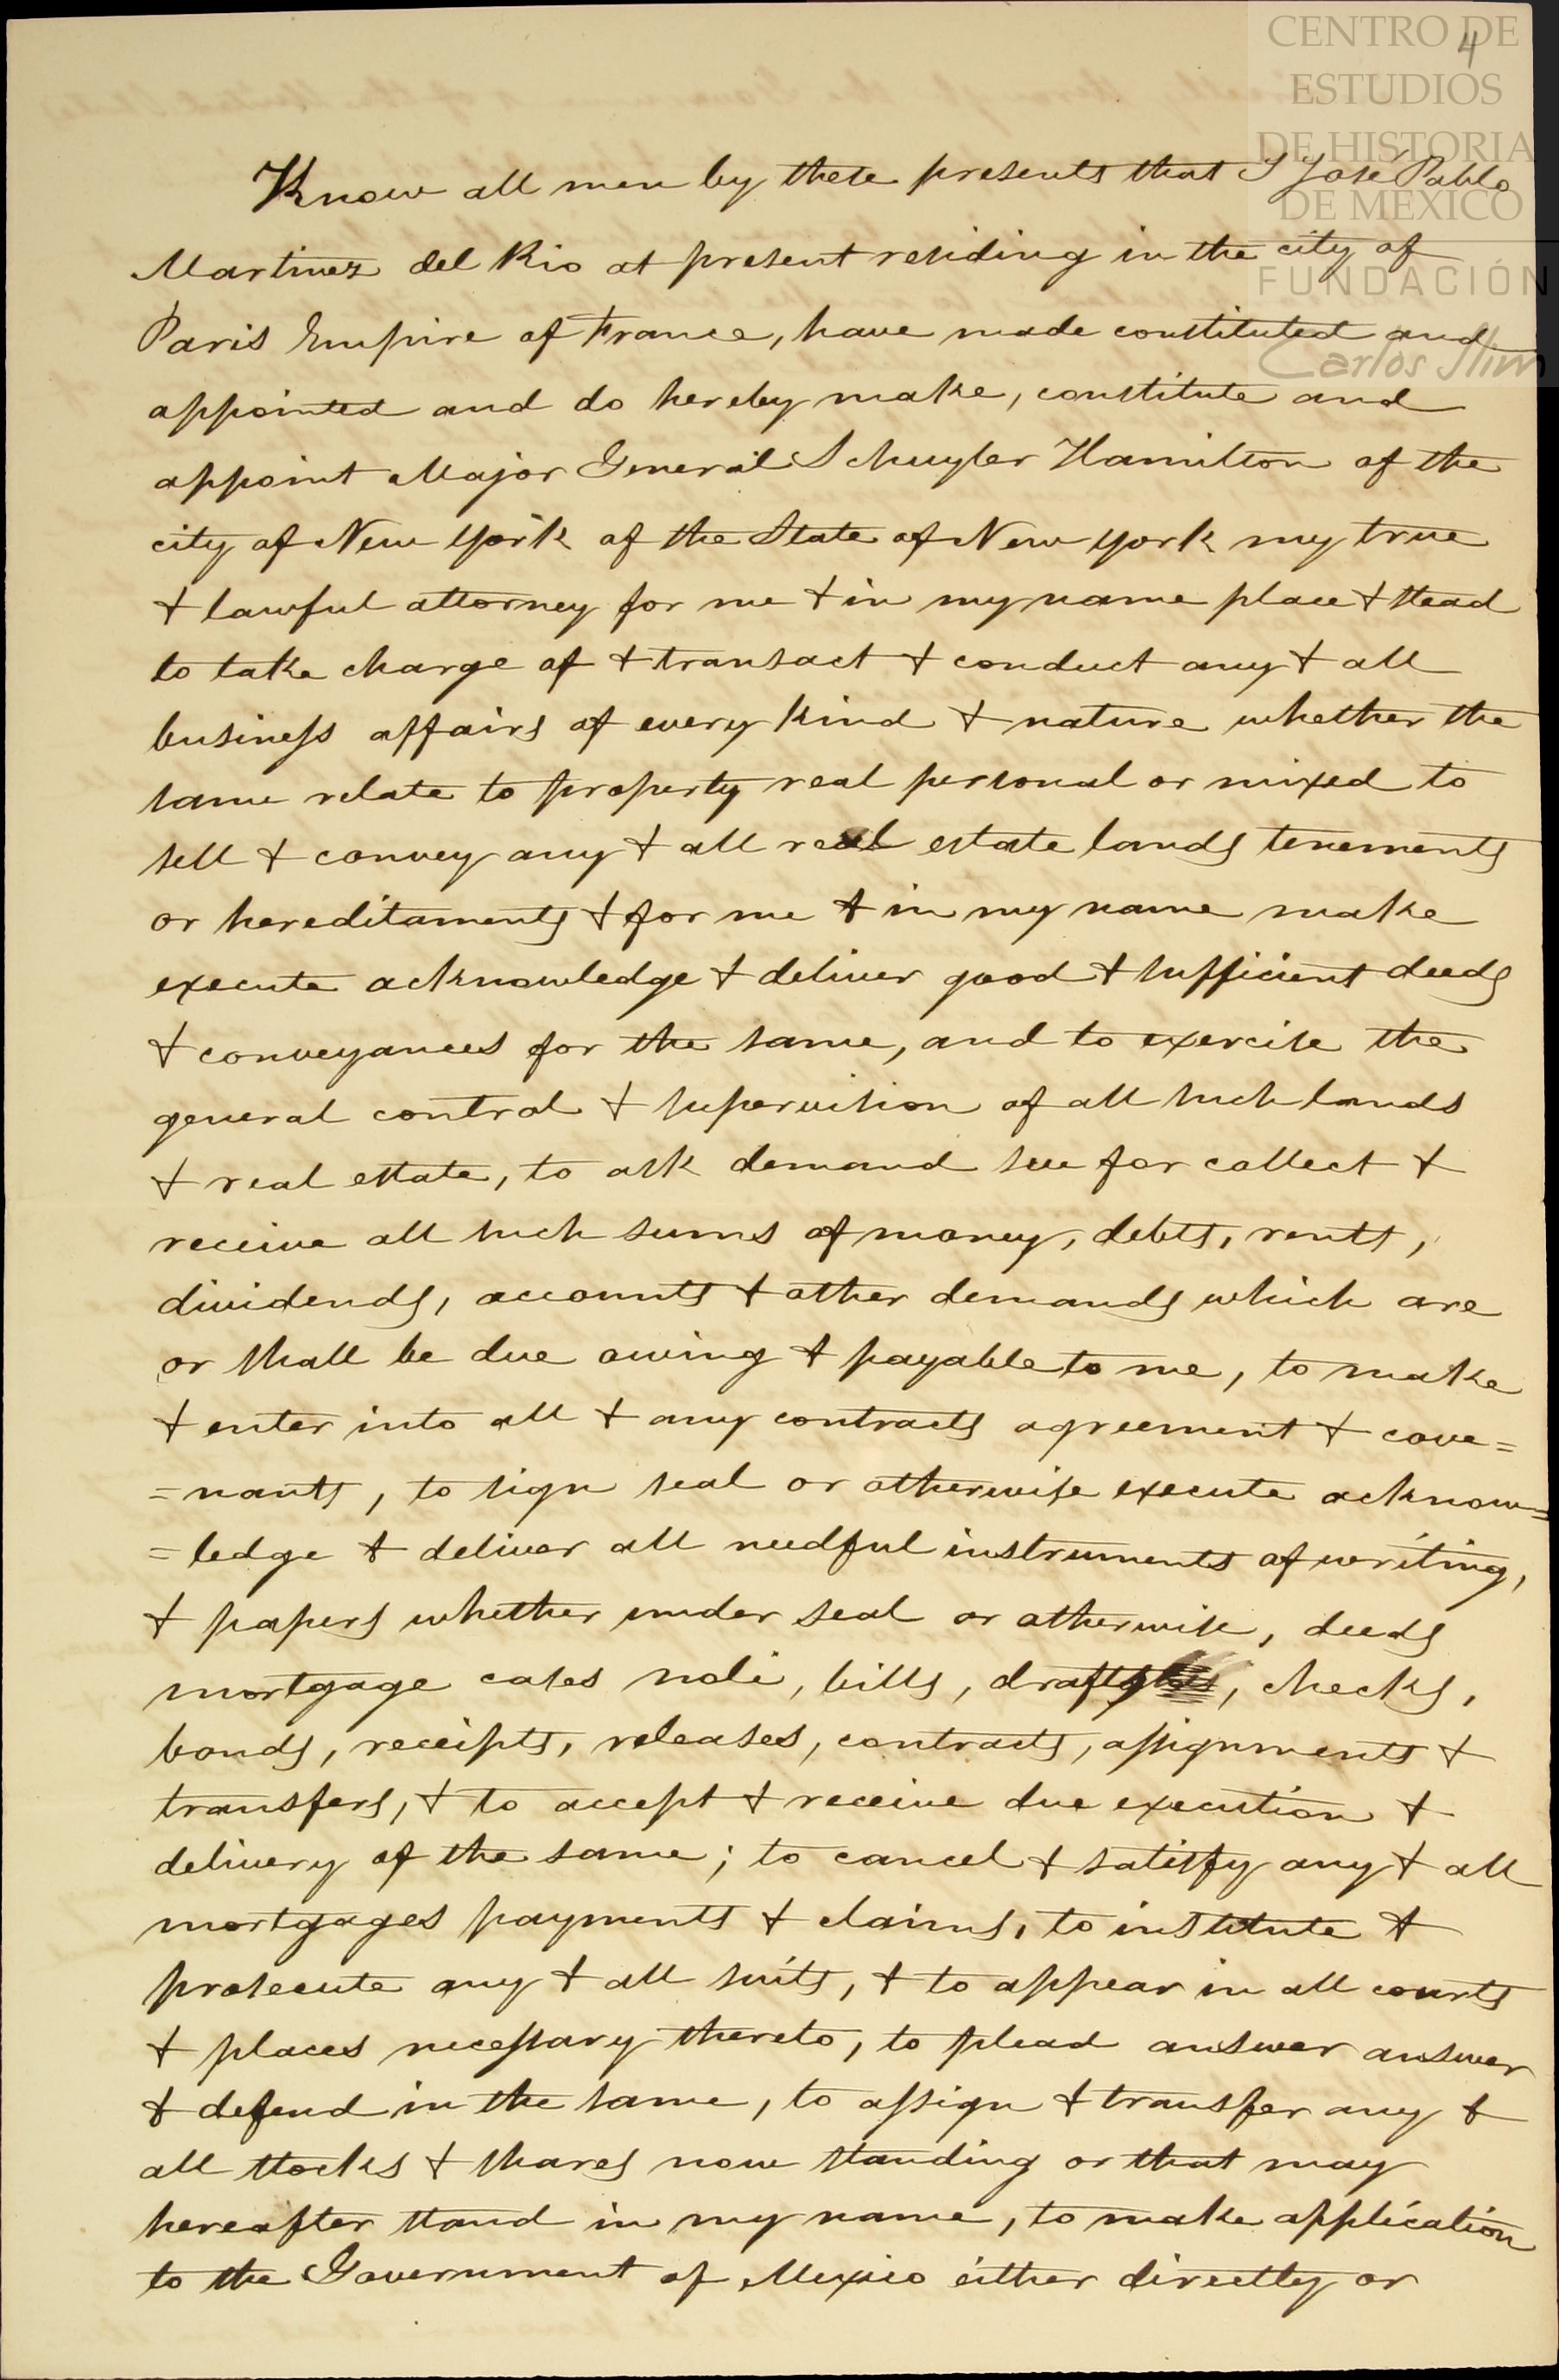 CENTRO DE
ESTUDIOS
DE HISTORIA
DE MEXICO
FUNDACIÓN
Carlos Slim
4
Know all men by these presents that I José Pablo
Martinez del Rio at present residing in the city of
Paris Empire of France, have made constituted and
appointed and do hereby make, constitute and
appoint Major General Schuyler Hamilton of the
city of New York of the State of New York my true
& lawful attorney for me & in my name place & stead
to take charge of & transact & conduct any & all
business affairs of every kind & nature whether the
same relate to property real personal or mixed to
sell & convey any & all real estate lands tenements
or hereditaments & for me & in my name make
execute acknowledge & deliver good & sufficient deeds
& conveyances for the same, and to exercise the
general control & supervision of all such lands
& real estate, to ask demand sue for collect &
receive all such sums of money, debts, rents,
dividends, accounts & other demands which are
or shall be due owing & payable to me, to make
& enter into all & any contracts agreement & cove=
=nants, to sign seal or otherwise execute acknow=
=ledge & deliver all needful instruments of writing,
& papers whether under seal or otherwise, deeds
mortgage cases, bills, drafts, checks,
bonds, receipts, releases, contracts, assignments &
transfers, & to accept & receive due execution &
delivery of the same; to cancel & satisfy any & all
mortgages payments & claims, to institute &
prosecute any & all suits, & to appear in all courts
& places necessary thereto, to plead answer answer
& defend in the same, to assign & transfer any &
all stocks & shares now standing or that may
hereafter stand in my name, to make application
to the Government of Mexico either directly or